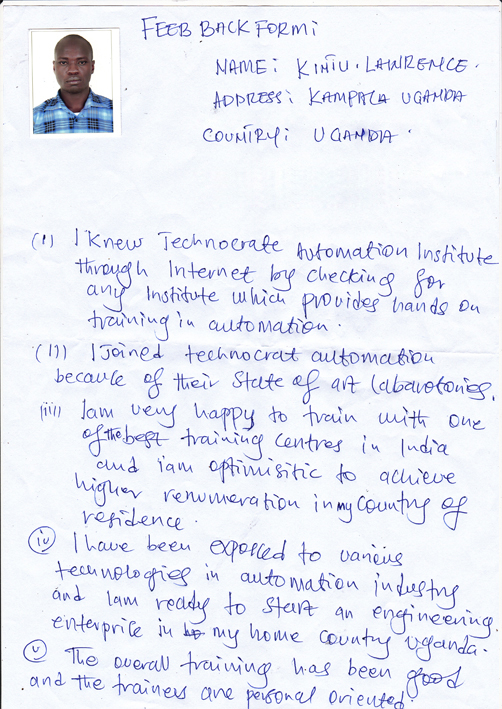 FEEB BACK FORM:
NAME: KINTU. LAWRENCE.
ADDRESS: KAMPALA UGANDA
COUNTRY: UGANDA.
(i) I Knew Technocrate Automation Institute
through Internet by checking for
any Institute which provides hands on
training in automation.
(ii) I Joined technocrat automation
because of their State of art labaratories.
(iii) Iam very happy to train with one
of the best training centres in India
and iam optimisitic to achieve
higher renumeration in my Country of
residence.
(iv) I have been exposed to various
technologies in automation industry
and Iam ready to start an engineering
enterprise in my home country Uganda.
(v) The overall training has been good
and the trainers are personal oriented.